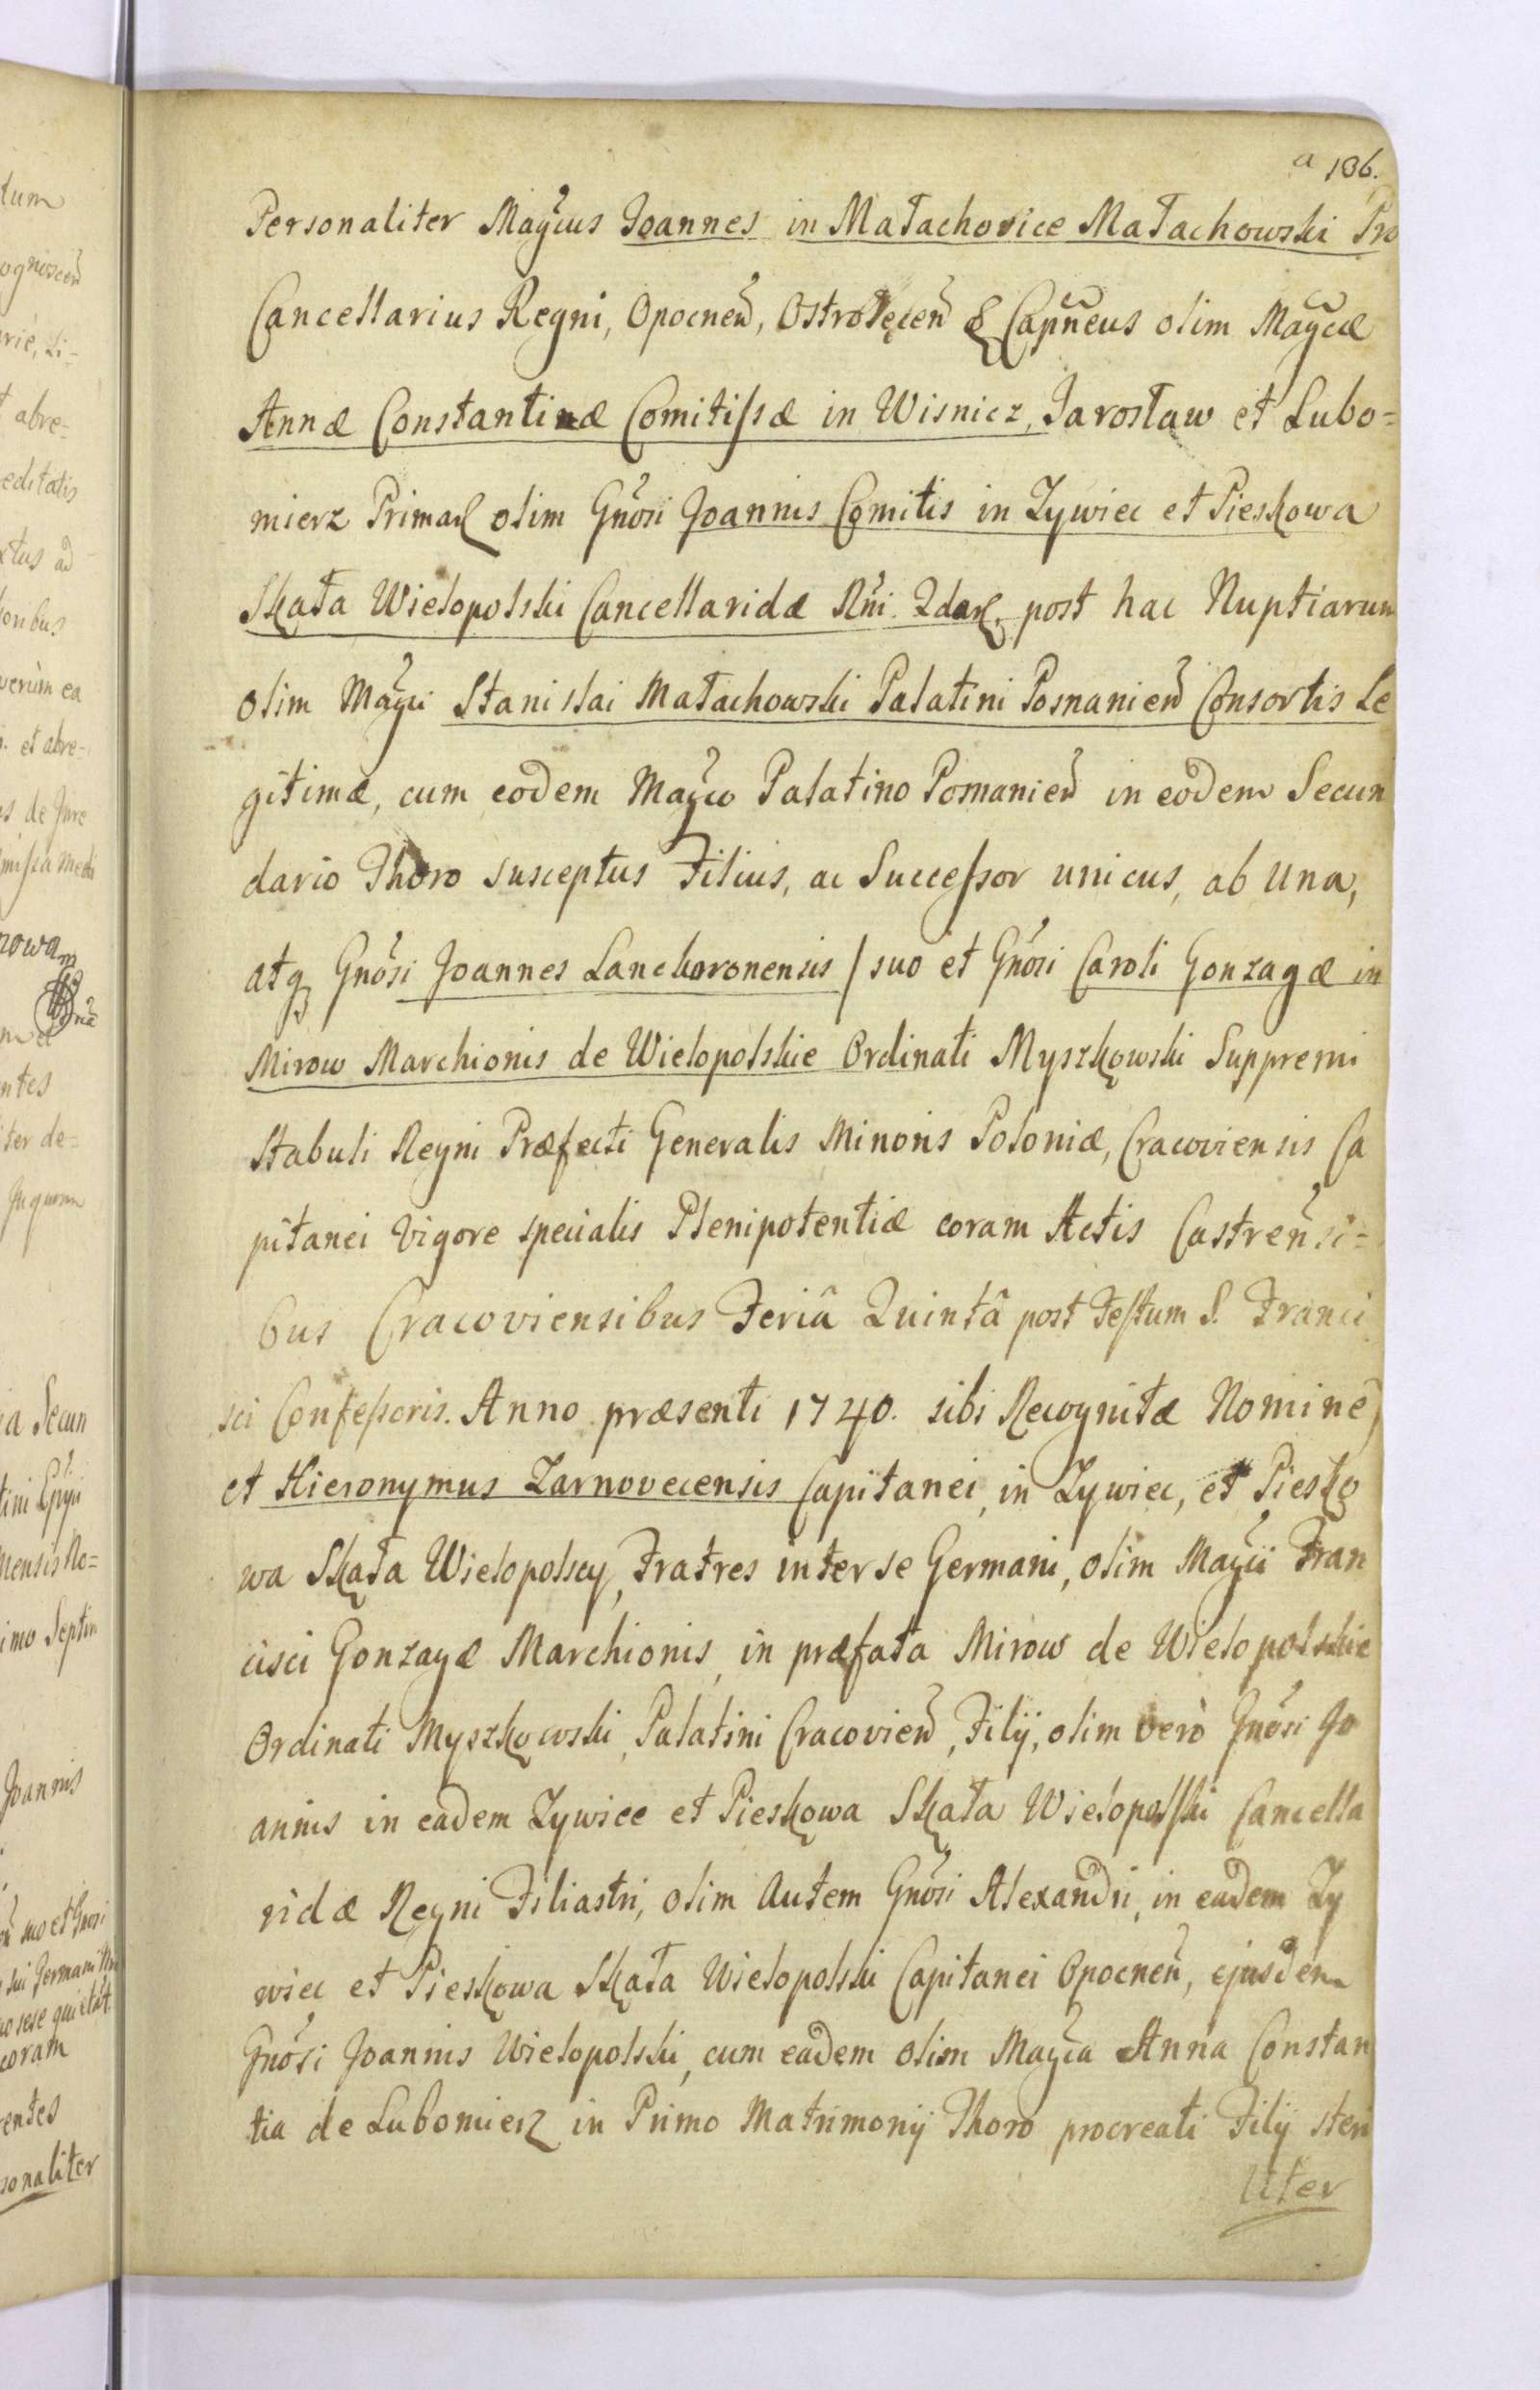 a 136.
Personaliter Magcus Joannes in Małachovice Małachowski Pro
Cancellarius Regni, Opocnen, Ostrołęcen & Capneus olim Magcæ
Annæ Constantinæ Comitissæ in Wisnicz, Jarosław et Lubo=
mierz Primar olim Gnosi Joannis Comitis in Zywiec et Pieskowa
Skała Wielopolski Cancellaridæ Rni 2dar, post hac Nuptiarum
olim Magci Stanislai Małachowski Palatini Posnanien Consortis Le
gitimæ, cum eodem Magco Palatino Posnanien in eodem Secun
dario Thoro susceptus Filius, ac Successor unicus, ab una,
atq Gnosi Joannes Lanckoronensis / suo et Gnosi Caroli Gonzagæ in
Mirow Marchionis de Wielopolskie Ordinati Myszkowski Suppremi
Stabuli Regni Præfecti Generalis Minoris Poloniæ, Cracoviensis Ca
pitanei vigore specialis Plenipotentiæ coram Actis Castrensi=
bus Cracoviensibus Feriâ Quintâ post Festum S. Franci
sci Confessoris. Anno præsenti 1740. sibi Recognitæ Nomine)
et Hieronymus Zarnovecensis Capitanei, in Zywiec, et Piesko
wa Skała Wielopolscy, Fratres inter se Germani, olim Magci Fran
cisci Gonzagæ Marchionis, in præfata Mirow de Wielopolskie
Ordinati Myszkowski, Palatini Cracovien, Filij, olim verò Gnosi Jo
annis in eadem Zywiec et Pieskowa Skała Wielopolski Cancella
ridæ Regni Filiastri, olim Autem Gnosi Alexandri, in eadem Zy
wiec et Pieskowa Skała Wielopolski Capitanei Opocnen, ejusdem
Gnosi Joannis Wielopolski, cum eadem olim Magca Anna Constan
tia de Lubomierz in Primo Matrimonij Thoro procreati Filij steri
Uter